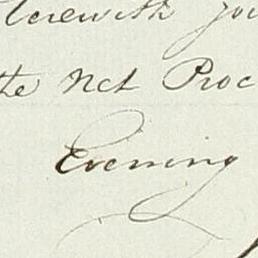 herewith you
the Net Proc
Evening